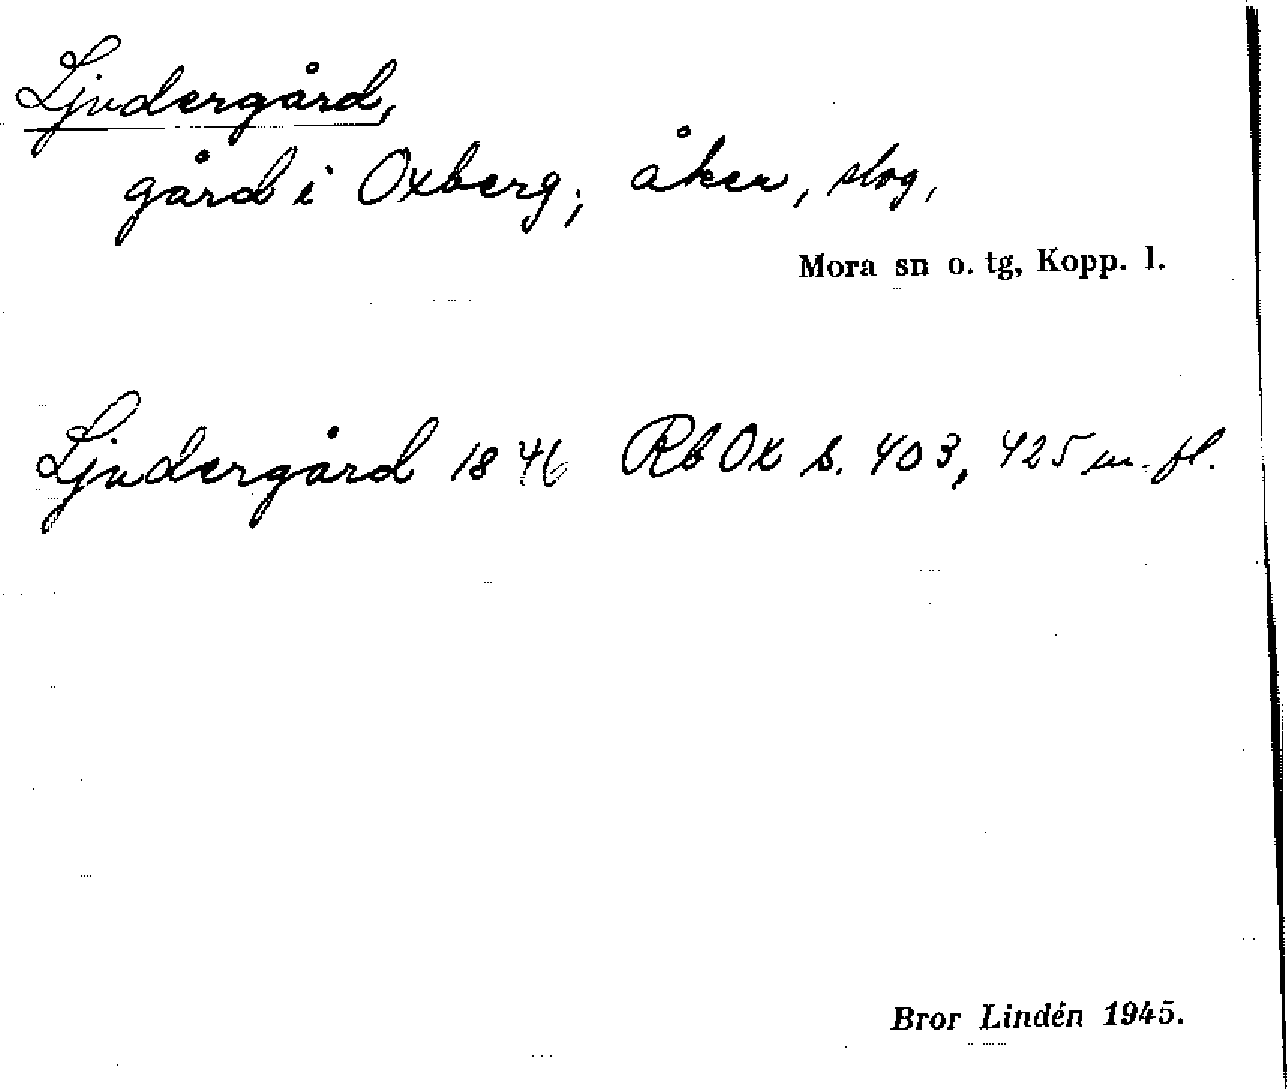 Ljudergård,
gård i Oxberg; åker, slog,
Mora sn o. tg, Kopp. l.
Ljudergård 1846 Rb Ox s. 403, 425 m. fl.
Bror Lindén 1945.